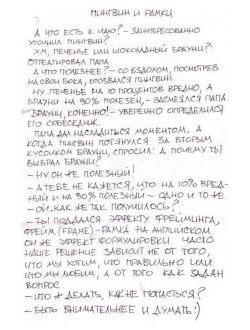 ПИНГВИН И РАМКИ
А ЧТО ЕСТЬ К ЧАЮ? – ЗАИНТЕРЕСОВАННО
УТОЧНИЛ ПИНГВИН?
ХМ, ПЕЧЕНЬЕ ИЛИ ШОКОЛАДНЫЙ БРАУНИ?-
ОТРЕАГИРОВАЛ ПАПА.
А ЧТО ПОЛЕЗНЕЕ? – СО ВЗДОХОМ, ПОСМОТРЕВ
НА СВОИ БОКА, ОТОЗВАЛСЯ ПИНГВИН.
НУ ПЕЧЕНЬЕ НА 10 ПРОЦЕНТОВ ВРЕДНО, А
БРАУНИ НА 90% ПОЛЕЗЕН, – ЗАСМЕЯЛСЯ ПАПА
БРАУНИ, КОНЕЧНО! – УВЕРЕННО ОПРЕДЕЛИЛСЯ
ЕГО СОБЕСЕДНИК.
ПАПА ДАЛ НАСЛАДИТЬСЯ МОМЕНТОМ. А
КОГДА ПИНГВИН ПОТЯНУЛСЯ ЗА ВТОРЫМ
КУСОЧКОМ БРАУНИ, СПРОСИЛ: А ПОЧЕМУ ТЫ
ВЫБРАЛ БРАУНИ?
– НУ ОН ЖЕ ПОЛЕЗНЫЙ!
– А ТЕБЕ НЕ КАЖЕТСЯ, ЧТО НА 10% ВРЕД-
НЫЙ И НА 90% ПОЛЕЗНЫЙ – ОДНО И ТО ЖЕ
– ОЙ. КАК ЖЕ ТАК ПОЛУЧИЛОСЬ?
– ТЫ ПОДДАЛСЯ ЭФФЕКТУ ФРЕЙМИНГА,
ФРЕЙМ (FRAME) – РАМКА НА АНГЛИЙСКОМ
ОН ЖЕ ЭФФЕКТ ФОРМУЛИРОВКИ. ЧАСТО
НАШЕ РЕШЕНИЕ ЗАВИСИТ НЕ ОТ ТОГО,
ЧТО МЫ ХОТИМ, ЧТО ПРАВИЛЬНО ИЛИ
ЧТО МЫ ЛЮБИМ, А ОТ ТОГО КАК ЗАДАН
ВОПРОС.
– ЧТО Ж ДЕЛАТЬ, КАК НЕ ПОПАСТЬСЯ?
– БЫТЬ ВНИМАТЕЛЬНЕЕ И ДУМАТЬ :)